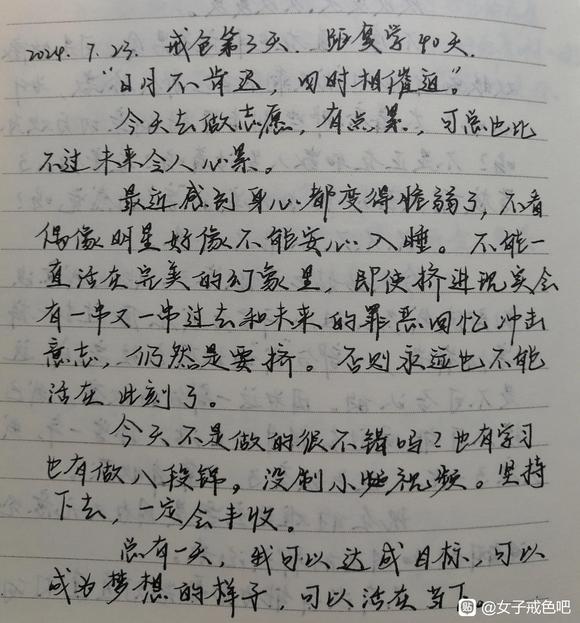 2024.7.23. 戒色第3天. 距复学40天.
“日月不肯迟，四时相催迫。”
今天去做志愿，有点累，可总也比
不过未来令人心累。
最近感到身心都变得脆弱了，不看
偶像明星好像不能安心入睡。不能一
直活在完美的幻象里，即使挤进现实会
有一串又一串过去和未来的罪恶回忆冲击
意志，仍然是要挤。否则永远也不能
活在此刻了。
今天不是做的很不错吗？也有学习
也有做八段锦，没刷小短视频。坚持
下去，一定会丰收。
总有一天，我可以达成目标，可以
成为梦想的样子，可以活在当下。
贴 @女子戒色吧